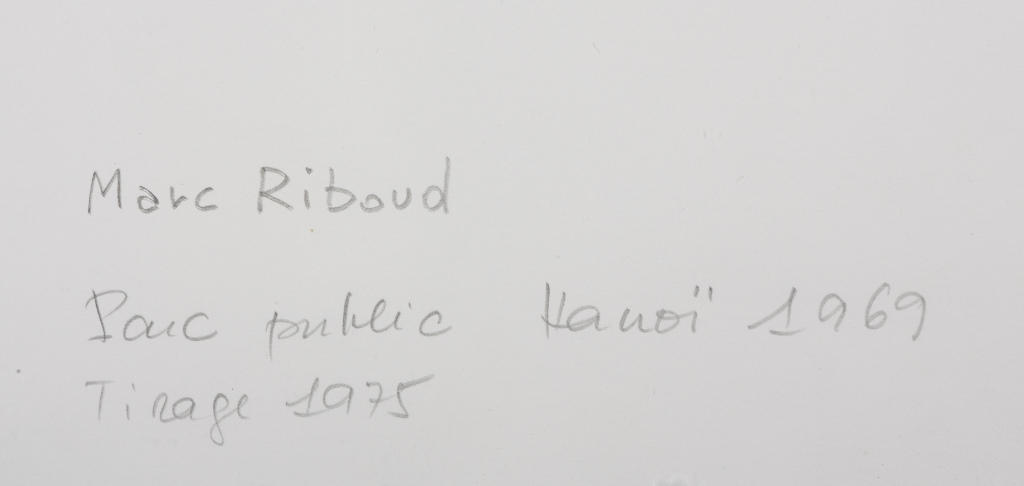 Marc Riboud
Parc public Hanoï 1969
Tirage 1975